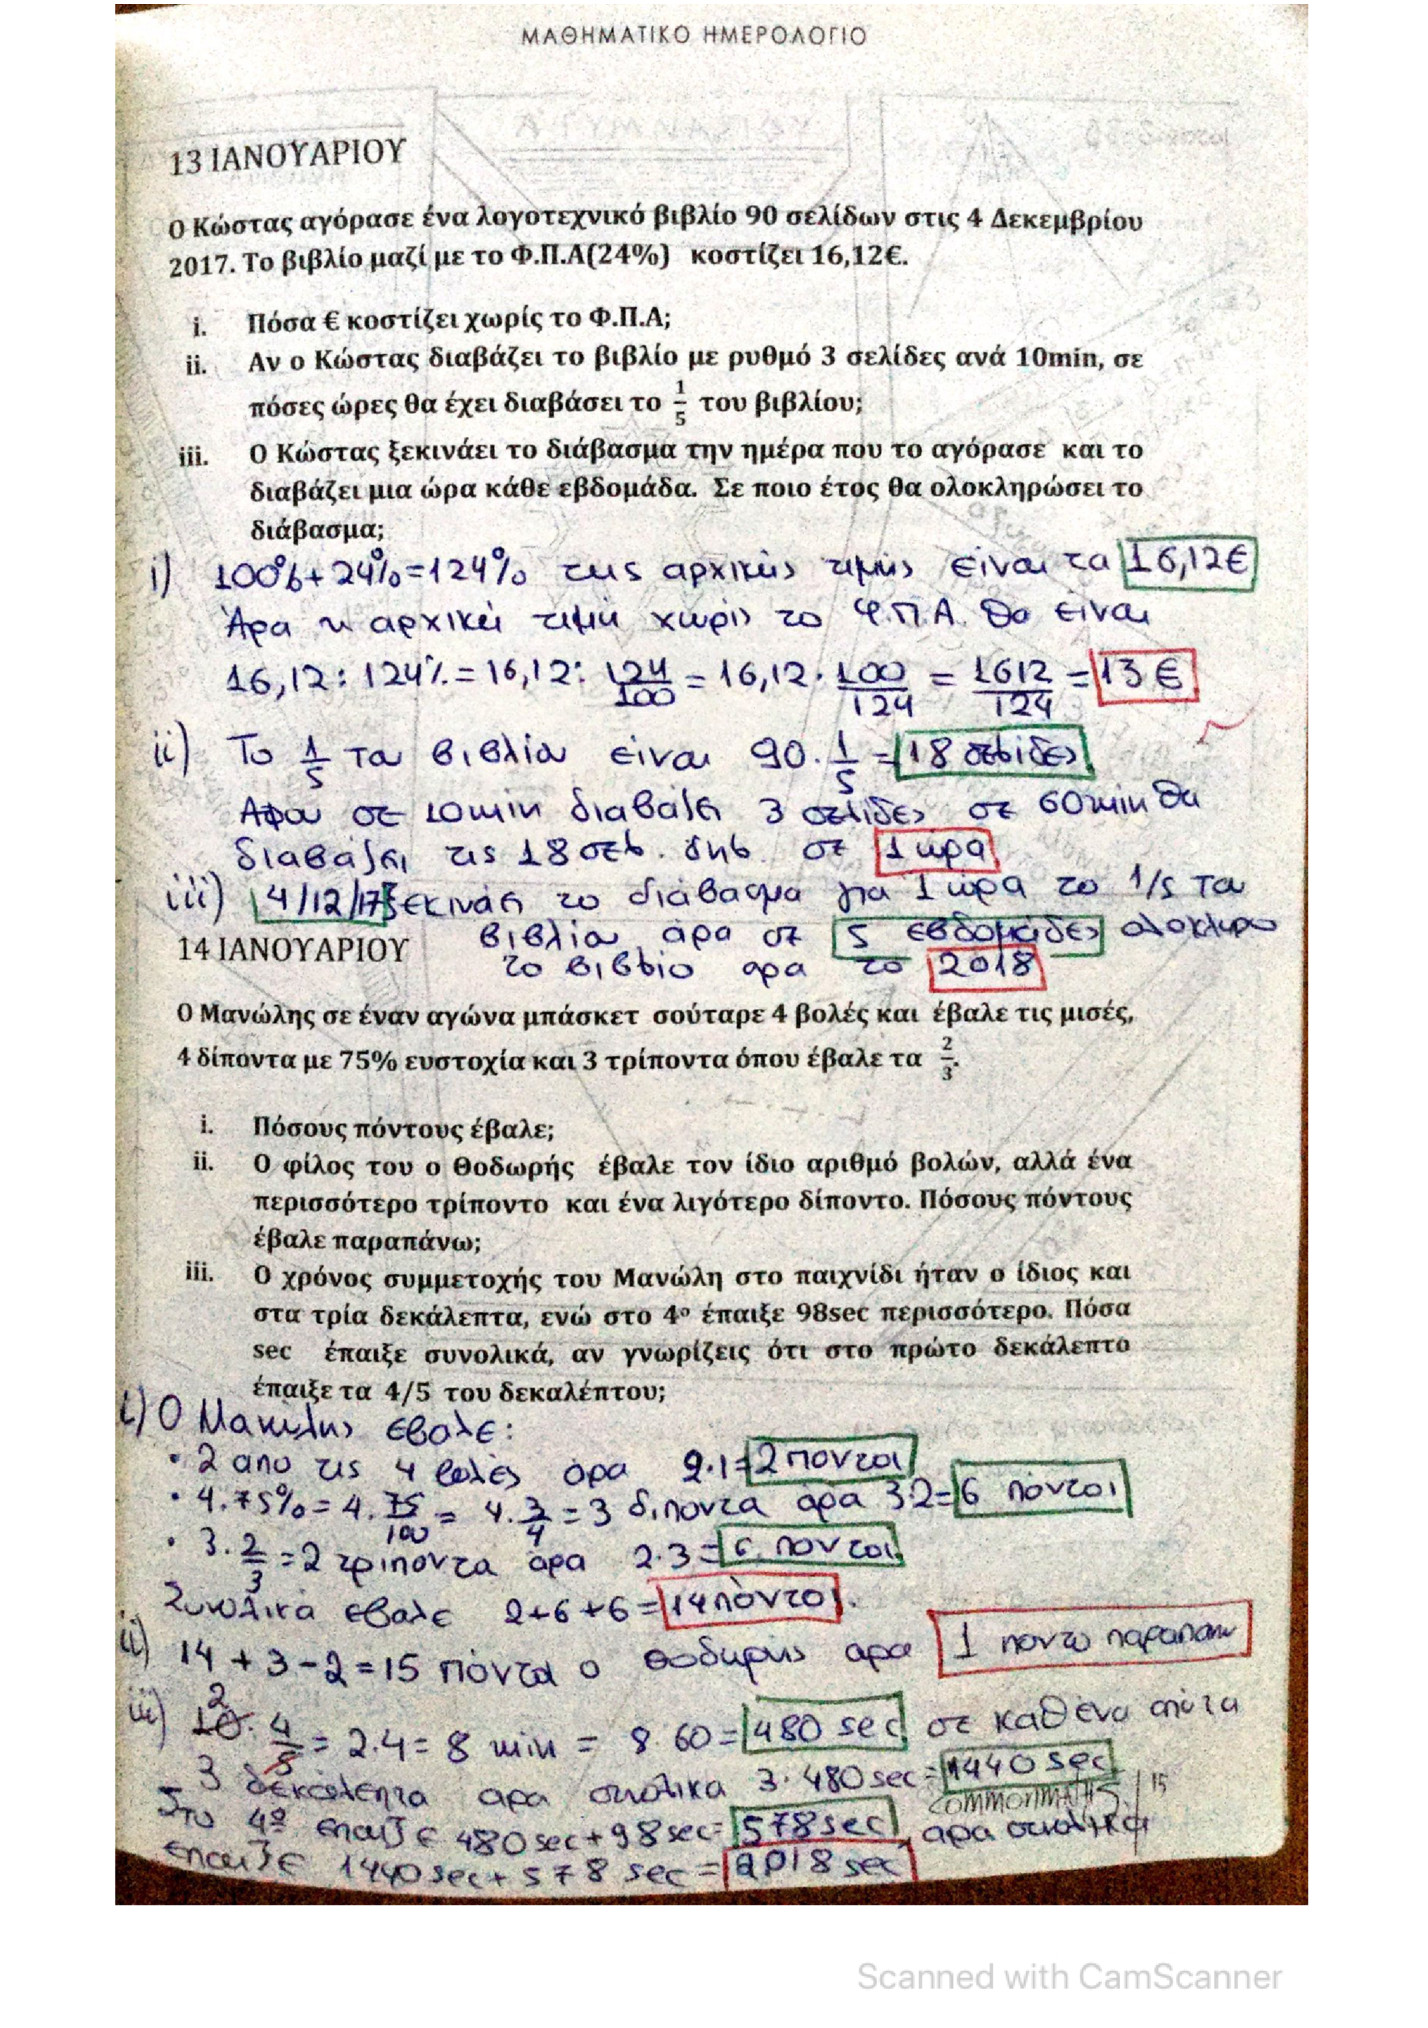 ΜΑΘΗΜΑΤΙΚΟ ΗΜΕΡΟΛΟΓΙΟ
13 ΙΑΝΟΥΑΡΙΟΥ
Ο Κώστας αγόρασε ένα λογοτεχνικό βιβλίο 90 σελίδων στις 4 Δεκεμβρίου
2017. Το βιβλίο μαζί με το Φ.Π.Α(24%) κοστίζει 16,12€.
i. Πόσα € κοστίζει χωρίς το Φ.Π.Α;
ii. Αν ο Κώστας διαβάζει το βιβλίο με ρυθμό 3 σελίδες ανά 10min, σε
πόσες ώρες θα έχει διαβάσει το 1/5 του βιβλίου;
iii. Ο Κώστας ξεκινάει το διάβασμα την ημέρα που το αγόρασε και το
διαβάζει μια ώρα κάθε εβδομάδα. Σε ποιο έτος θα ολοκληρώσει το
διάβασμα;
i) 100%+24%=124% της αρχικής τιμής είναι τα 16,12€
Άρα η αρχική τιμή χωρίς το Φ.Π.Α. θα είναι
16,12:124%=16,12:124/100=16,12·100/124=1612/124=13€
ii) Το 1/5 του βιβλίου είναι 90·1/5=18 σελίδες
Αφου σε 10min διαβάζει 3 σελίδες σε 60min θα
διαβάζει τις 18 σελ. δηλ. σε 1 ώρα
iii) 4/12/17 ξεκινάει το διάβασμα για 1 ώρα το 1/5 του
βιβλίου άρα σε 5 εβδομάδες ολοκληρω
14 ΙΑΝΟΥΑΡΙΟΥ
το βιβλίο αρα το 2018
Ο Μανώλης σε έναν αγώνα μπάσκετ σούταρε 4 βολές και έβαλε τις μισές,
4 δίποντα με 75% ευστοχία και 3 τρίποντα όπου έβαλε τα 2/3.
i. Πόσους πόντους έβαλε;
ii. Ο φίλος του ο Θοδωρής έβαλε τον ίδιο αριθμό βολών, αλλά ένα
περισσότερο τρίποντο και ένα λιγότερο δίποντο. Πόσους πόντους
έβαλε παραπάνω;
iii. Ο χρόνος συμμετοχής του Μανώλη στο παιχνίδι ήταν ο ίδιος και
στα τρία δεκάλεπτα, ενώ στο 4ο έπαιξε 98sec περισσότερο. Πόσα
sec έπαιξε συνολικά, αν γνωρίζεις ότι στο πρώτο δεκάλεπτο
έπαιξε τα 4/5 του δεκαλέπτου;
i) Ο Μανώλης εβαλε:
• 2 απο τις 4 βολές άρα 2·1=2 ποντοι
• 4·75%=4·75/100=4·3/4=3 δίποντα αρα 3·2=6 πόντοι
• 3·2/3=2 τριποντα άρα 2·3=6 ποντοι
Συνολικά έβαλε 2+6+6=14 πόντοι.
ii) 14+3-2=15 πόντοι ο Θοδωρής αρα 1 ποντο παραπανω
iii) 10·4/5=2·4=8 min = 8·60=480 sec σε καθένα από τα
3 δεκάλεπτα αρα συνολικα 3·480sec=1440 sec
COMMONMATHS 15
Στο 4º επαιξε 480sec+98sec=578sec, αρα συνολικα
επαιξε 1440sec+578 sec=2018 sec
Scanned with CamScanner